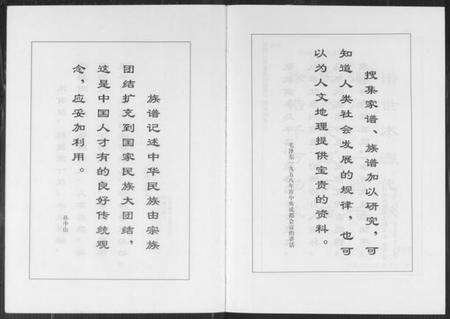 搜集家谱、族谱加以研究，可
知道人类社会发展的规律，也可
以为人文地理提供宝贵的资料。
毛泽东一九五八年在中央成都会议的讲话
族谱记述中华民族由家族
团结扩充到国家民族大团结，
这是中国人才有的良好传统观
念，应妥加利用。
孙中山